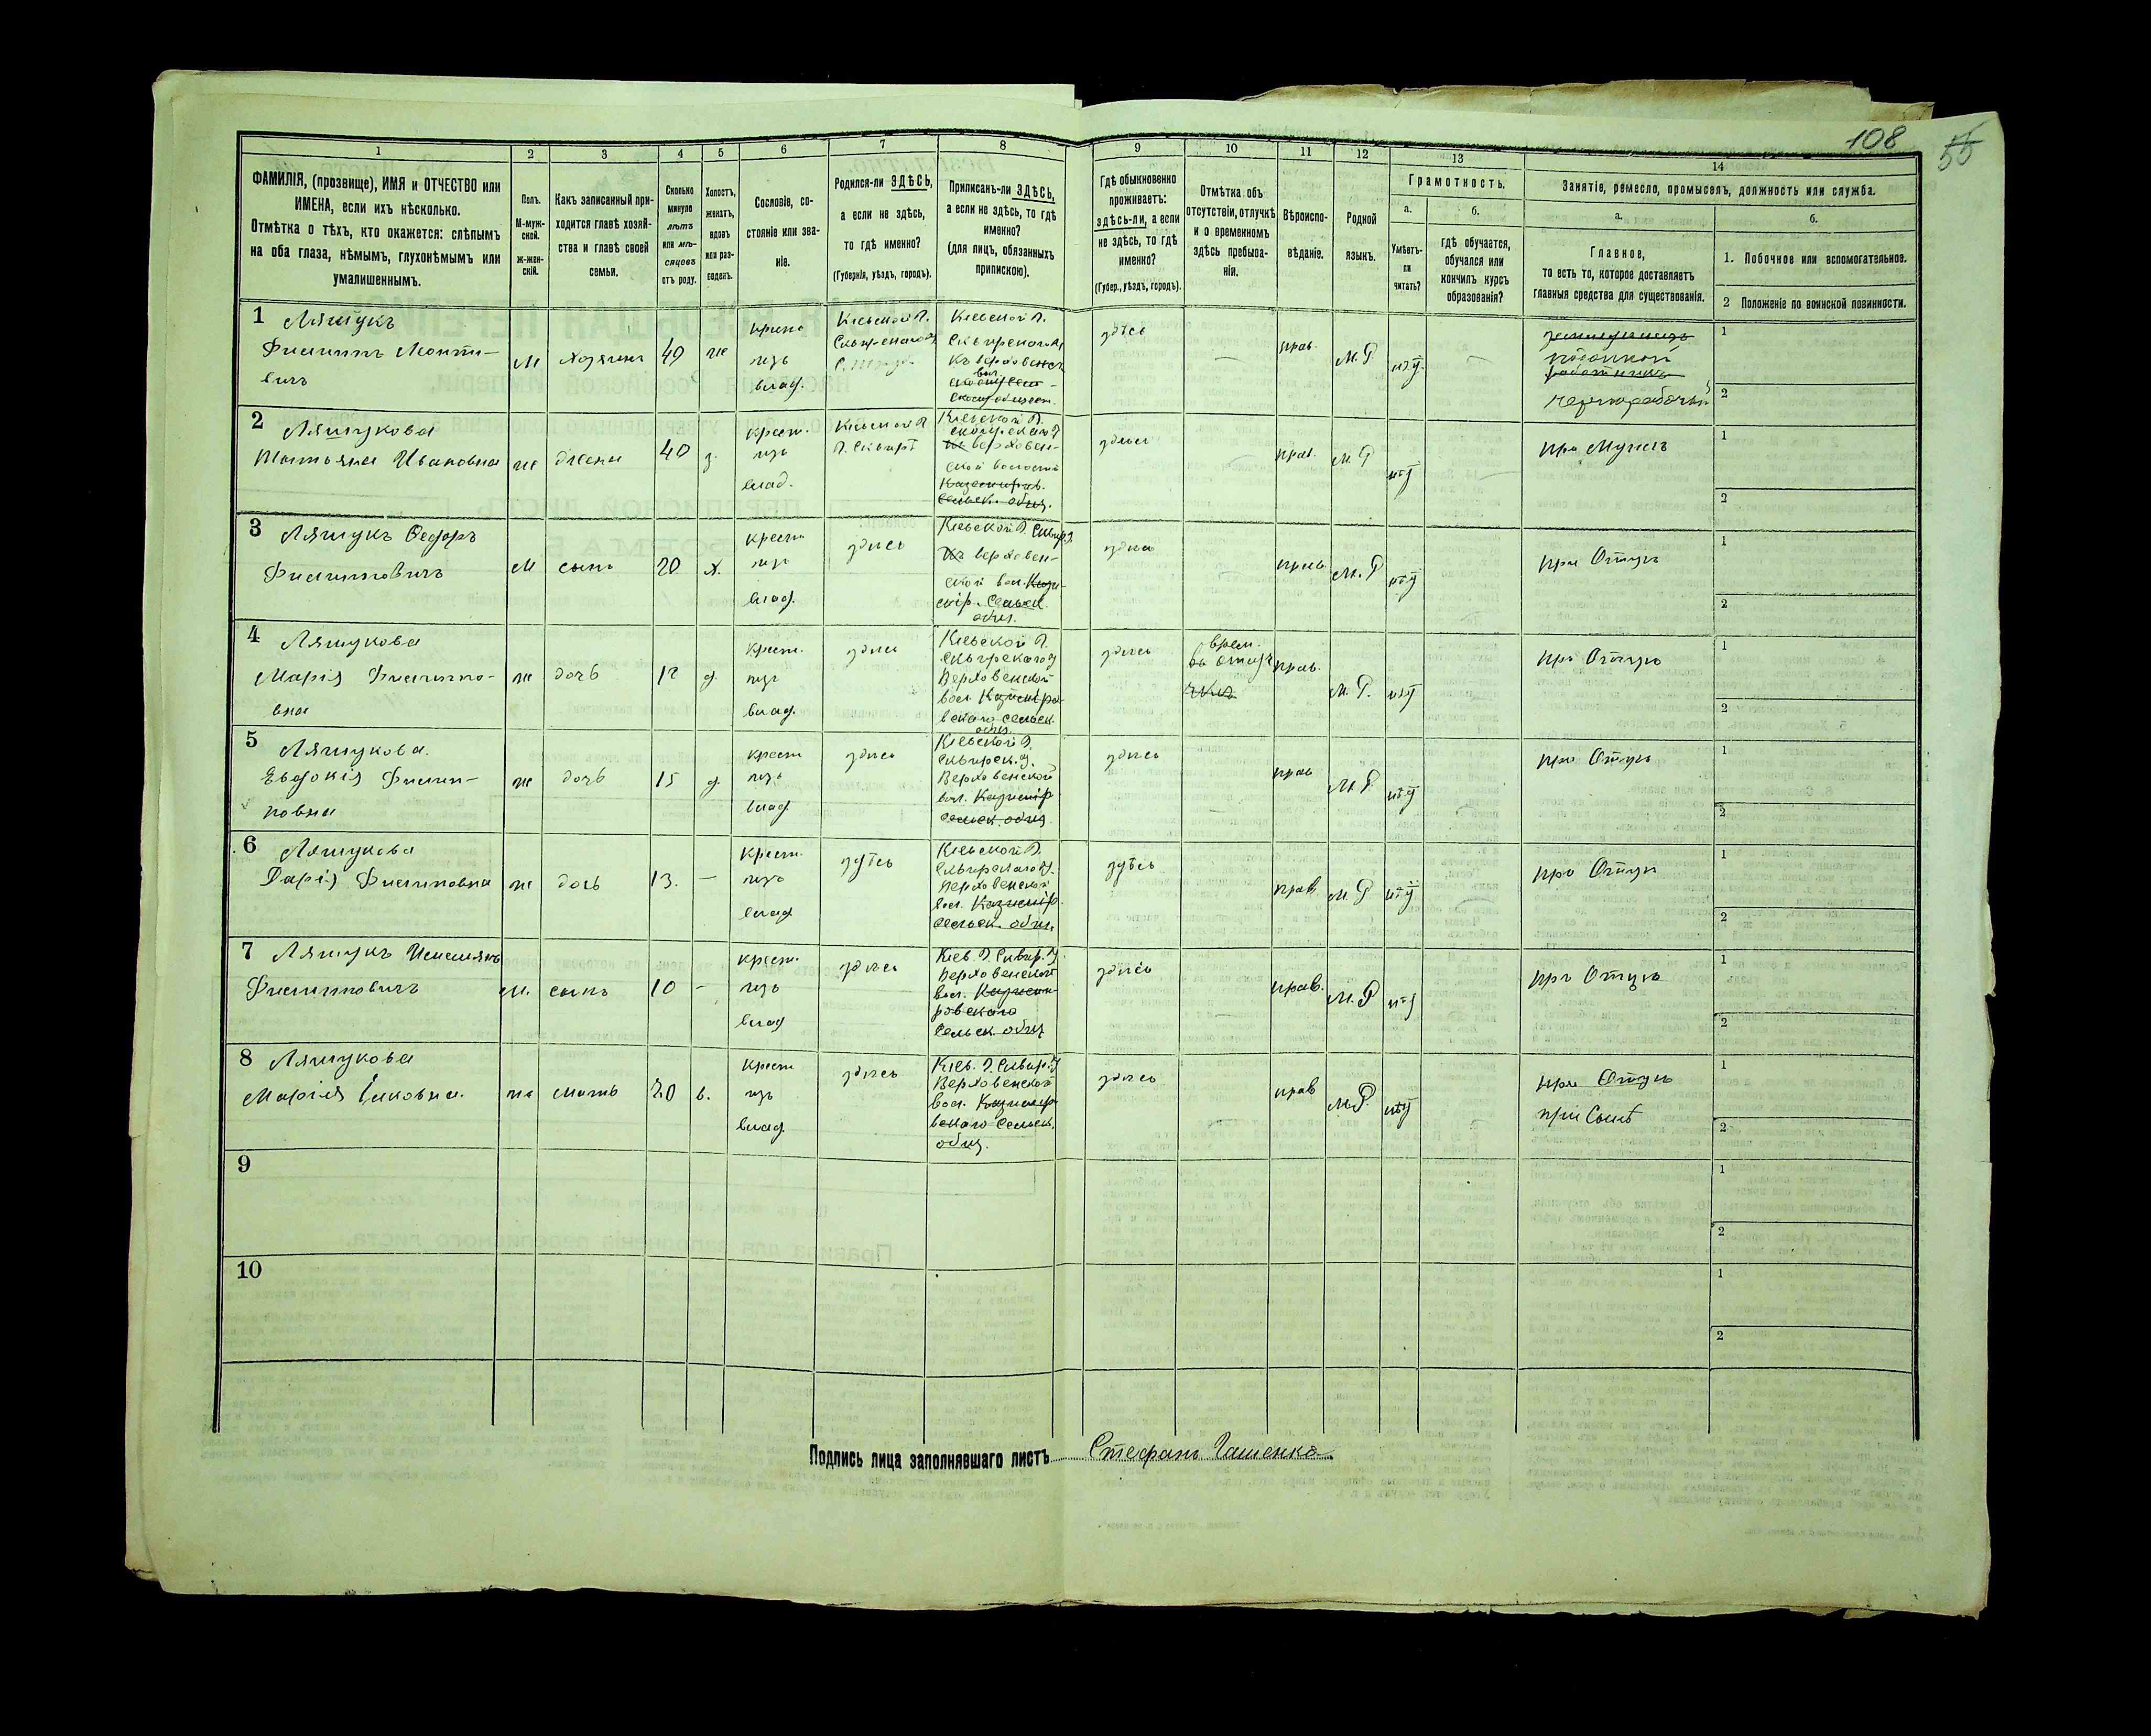 108 55
1 2 3 4 5 6 7 8 9 10 11 12 13 14
ФАМИЛІЯ, (прозвище), ИМЯ и ОТЧЕСТВО или
ИМЕНА, если ихъ нѣсколько.
Отмѣтка о тѣхъ, кто окажется: слѣпымъ
на оба глаза, нѣмымъ, глухонѣмымъ или
умалишеннымъ.
Полъ.
М-муж-
ской.
ж-жен-
скій.
Какъ записанный при-
ходится главѣ хозяй-
ства и главѣ своей
семьи.
Сколько
минуло
лѣтъ
или мѣ-
сяцевъ
отъ роду.
Холостъ,
женатъ,
вдовъ
или раз-
веденъ.
Сословіе, со-
стояніе или зва-
ніе.
Родился-ли ЗДѢСЬ,
а если не здѣсь,
то гдѣ именно?
(Губернія, уѣздъ, городъ).
Приписанъ-ли ЗДѢСЬ,
а если не здѣсь, то гдѣ
именно?
(для лицъ, обязанныхъ
припискою).
Гдѣ обыкновенно
проживаетъ:
здѣсь-ли, а если
не здѣсь, то гдѣ
именно?
(Губер., уѣздъ, городъ).
Отмѣтка объ
отсутствіи, отлучкѣ
и о временномъ
здѣсь пребыва-
ніи.
Вѣроиспо-
вѣданіе.
Родной
языкъ.
Грамотность.
а.
Умѣетъ-
ли
читать?
б.
гдѣ обучается,
обучался или
кончилъ курсъ
образованія?
Занятіе, ремесло, промыселъ, должность или служба.
а.
Главное,
то есть то, которое доставляетъ
главныя средства для существованія.
б.
1. Побочное или вспомогательное.
2 Положеніе по воинской повинности.
1 Ляшукъ
Филиппъ
вичъ
М хозяинъ 49 же
изъ
влад.
Кіевской г.
Кіевской г.
Сквирскаго у
здѣсь — прав. М. Р. нѣт. —
чернорабочій
1
2
2 Ляшукова
Татьяна Ивановна же жена 40 з.
крест.
изъ
влад.
Кіевской г
Кіевской г.
верховен-
ской волости
сельск. общ.
здѣсь прав. М. Р нѣт
при мужѣ
1
2
3 Ляшукъ Федоръ
Филипповичъ М сынъ 20 х.
крест
изъ
влад.
здѣсь
Кіевской г. Сквир. у.
верховен-
ской вол.
сельск.
общ.
здѣсь прав. М. Р нѣт
при Отцѣ
1
2
4 Ляшукова
Марія Филиппо-
вна
же дочь д.
крест.
изъ
влад.
здѣсь
Кіевской г.
Сквирскаго у
Верховенской
вол. Казиміро-
вскаго сельск.
общ.
здѣсь
врем.
прав. М. Р. нѣт
при Отцѣ
1
2
5 Ляшукова.
Евдокія Филип-
повна
же дочь 15 д.
крест
изъ
влад
здѣсь
Кіевской г.
Сквирск. у.
Верховенской
вол. Казимір
сельск. общ.
здѣсь — прав М. Р нѣт
при Отцѣ
1
2
6 Ляшукова
Дарія Филиповна же дочь 13. —
крест.
изъ
влад
здѣсь
Кіевской г.
Сквирскаго у.
Верховенской
вол. Казимір.
сельск. общ.
здѣсь прав. М. Р нѣт
при Отцѣ
1
2
7 Ляшукъ
Филипповичъ М. сынъ 10 -
крест.
изъ
влад
здѣсь
Кіев. г. Сквир. у
Верховенской
вол. Казими-
ровскаго
сельск. общ
здѣсь прав. М. Р нѣт
при Отцѣ
1
2
8 Ляшукова
Марія мать 70 в.
крест
изъ
влад.
здѣсь
Кіев. г. Сквир. у
Верховенской
вол.
вскаго сельск.
общ.
здѣсь прав М. Р. нѣт
при Отцѣ
при Сынѣ
1
2
9 1
2
10 1
2
Подпись лица заполнявшаго листъ Стефанъ